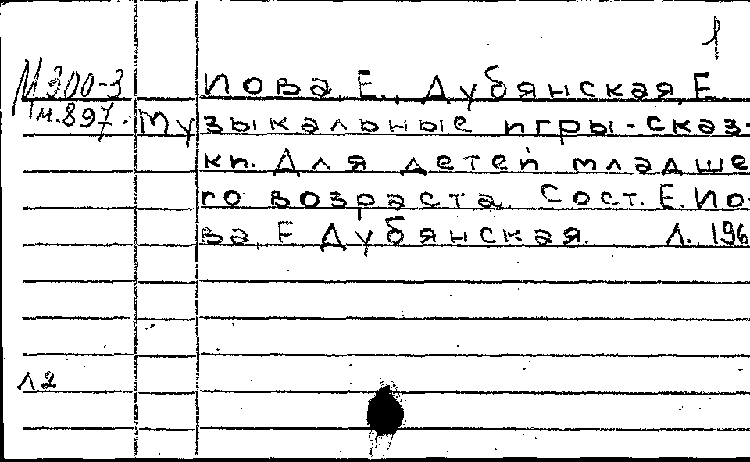 1
М300-3 Иова, Е., Дубянская, Е
м.897. Музыкальные игры-сказ-
ки. Для детей младше
го возраста. Сост. Е. Ио-
ва, Е Дубянская. Л. 196
л2